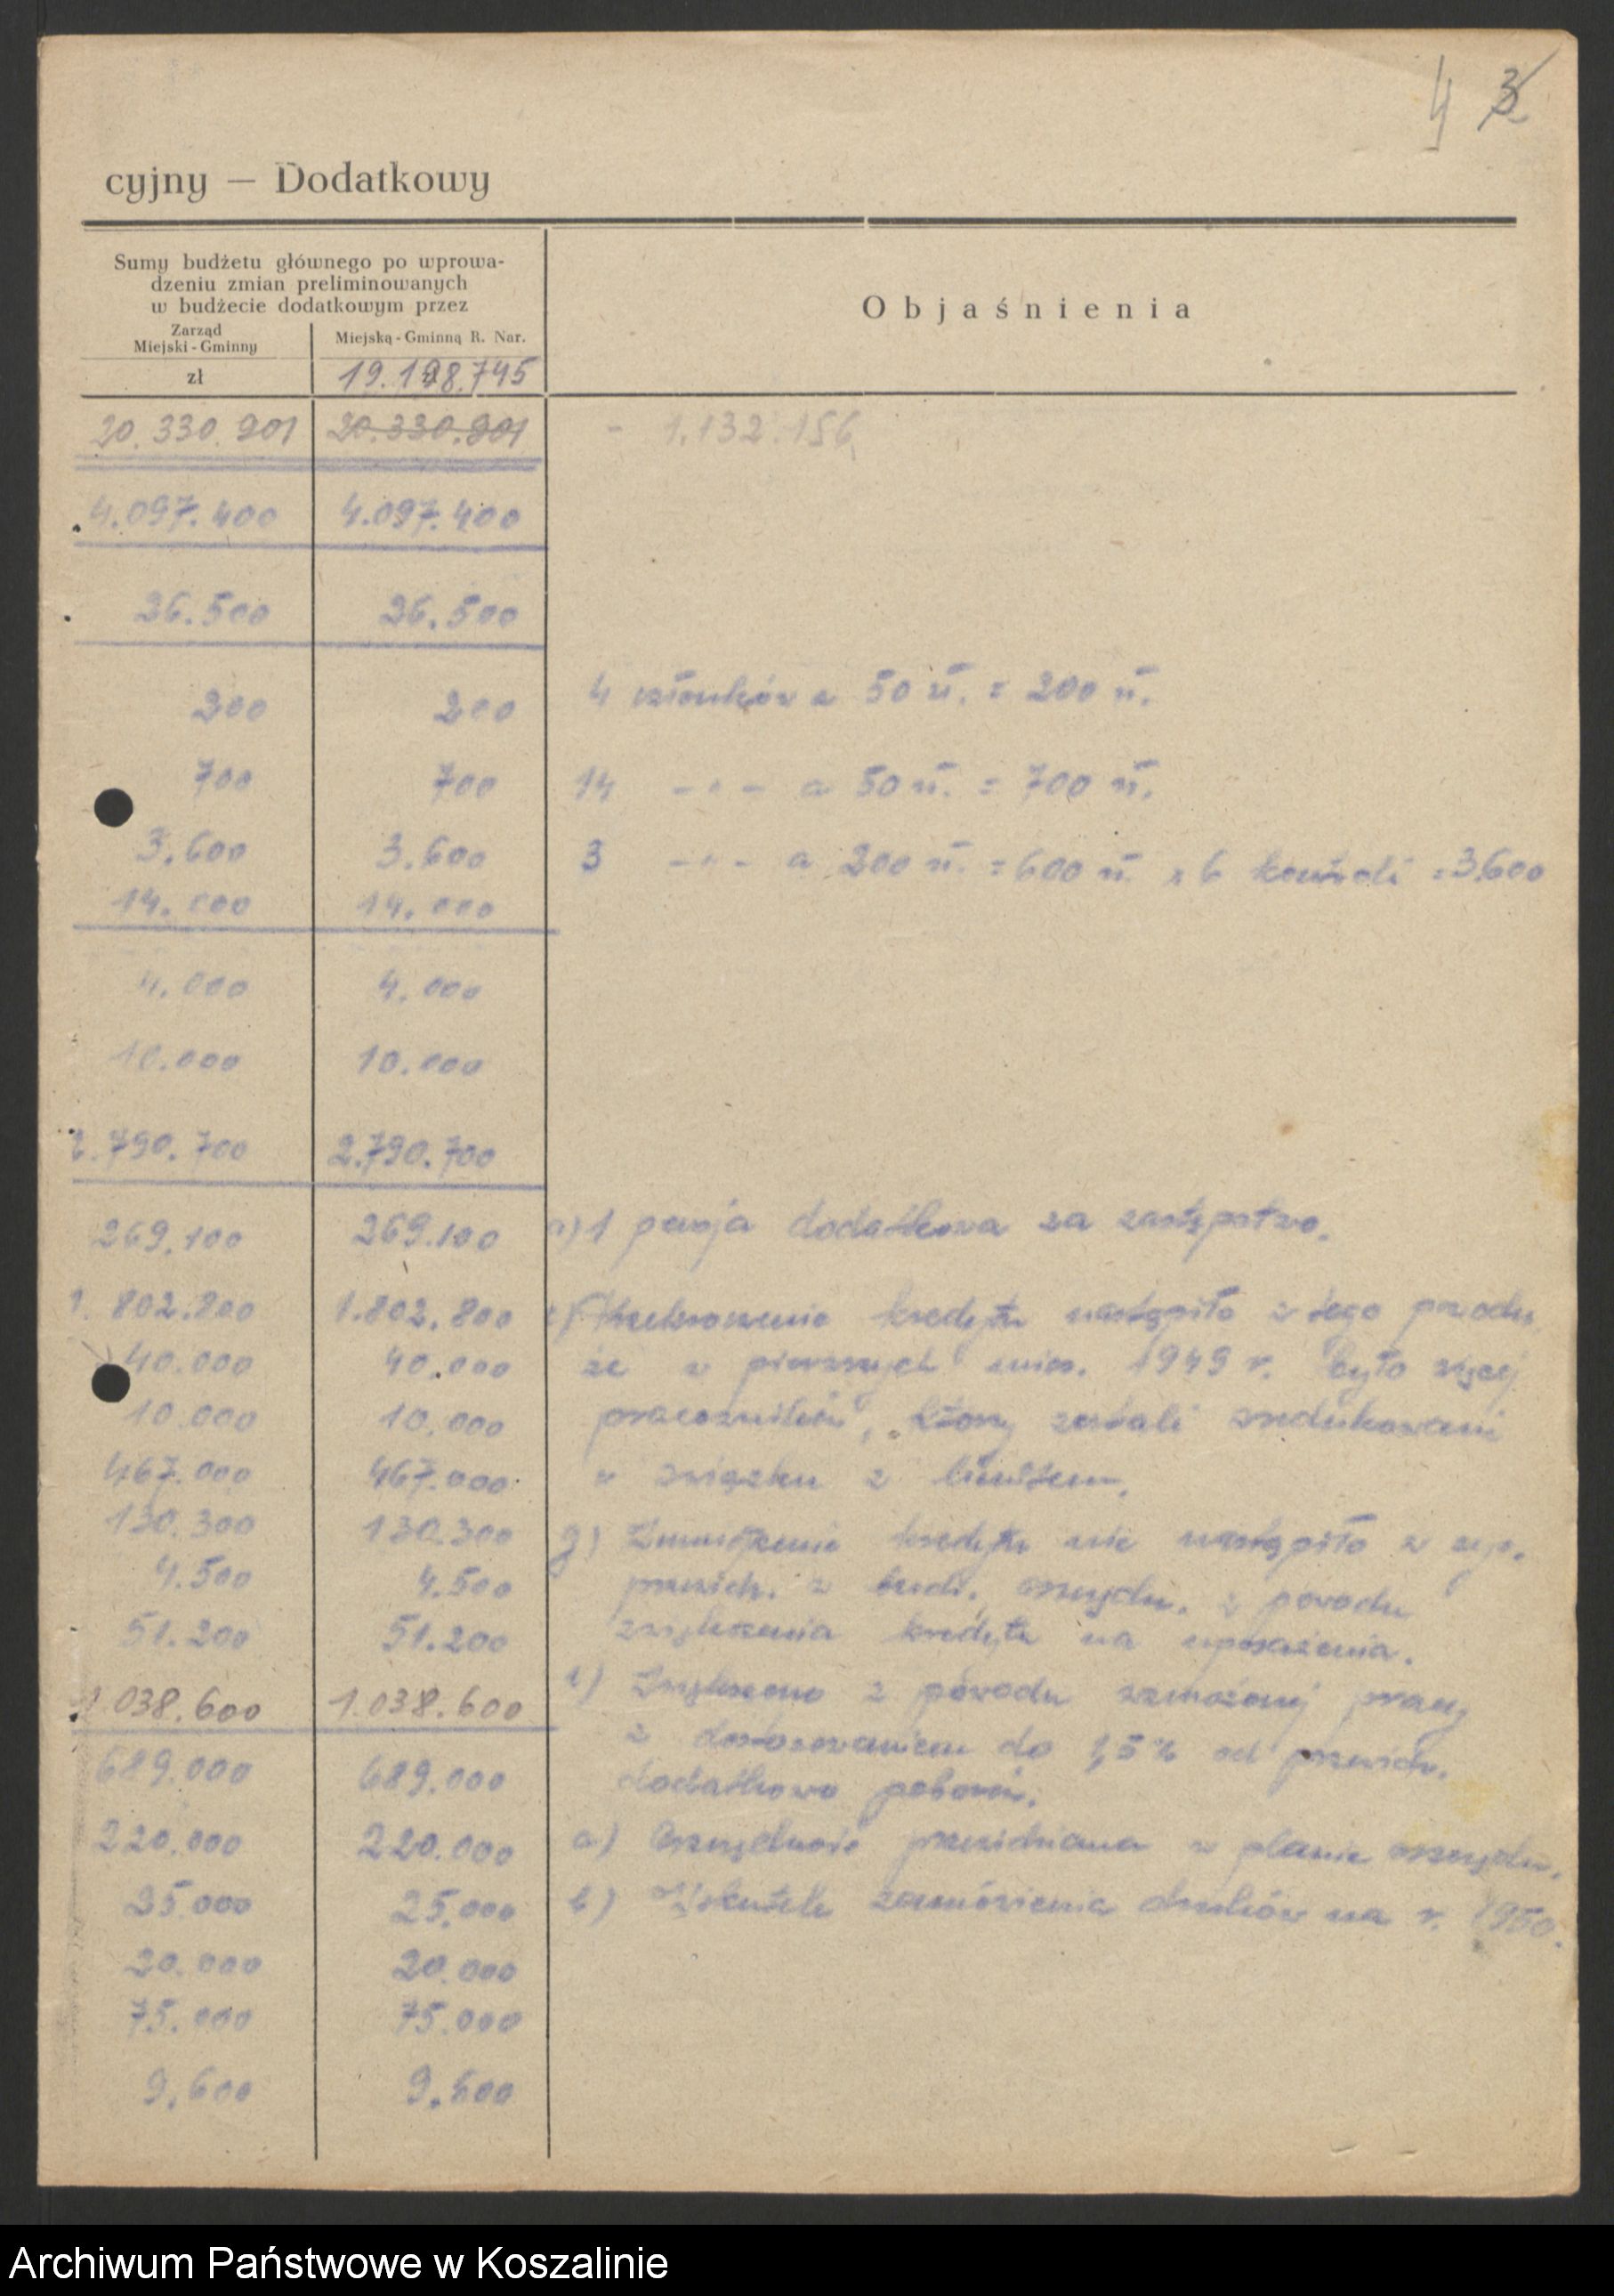 4 3
cyjny — Dodatkowy
Sumy budżetu głównego po wprowa-
dzeniu zmian preliminowanych
w budżecie dodatkowym przez
Zarząd
Miejski - Gminny
Miejską - Gminną R. Nar.
Objaśnienia
zł 19.198.745
20.330.901 20.330.901 - 1.132.156
4.097.400 4.097.400
36.500 36.500
200 200 4 członków a 50 zł. = 200 zł.
700 700 14 -"- a 50 zł. = 700 zł.
3.600 3.600 3 -"- a 200 zł. = 600 zł. x 6 kontroli = 3.600
14.000 14.000
4.000 4.000
10.000 10.000
2.790.700 2.790.700
269.100 269.100 a) 1 pensja dodatkowa za zastępstwo.
1.802.800 1.802.800 kredytu nastąpiło z tego powodu
40.000 40.000 że w pierwszych mies. 1949 r. było więcej
10.000 10.000 pracowników, którzy zostali zredukowani
467.000 467.000 w związku z
130.300 130.300 g) Zmniejszenie kredytu nie nastąpiło w wys.
4.500 4.500 przewidz. w bud. oszczędn. z powodu
51.200 51.200 zwiększenia kredytu na uposażenia.
1.038.600 1.038.600 Zwiększono z powodu wzmożonej pracy
z dostosowaniem do 1,5% od przewidz.
689.000 689.000 dodatkowo poborów.
220.000 220.000 a) Oszczędność przewidziana w planie oszczędn.
25.000 25.000 b) Wskutek zamówienia druków na r. 1950.
20.000 20.000
75.000 75.000
9.600 9.600
Archiwum Państwowe w Koszalinie